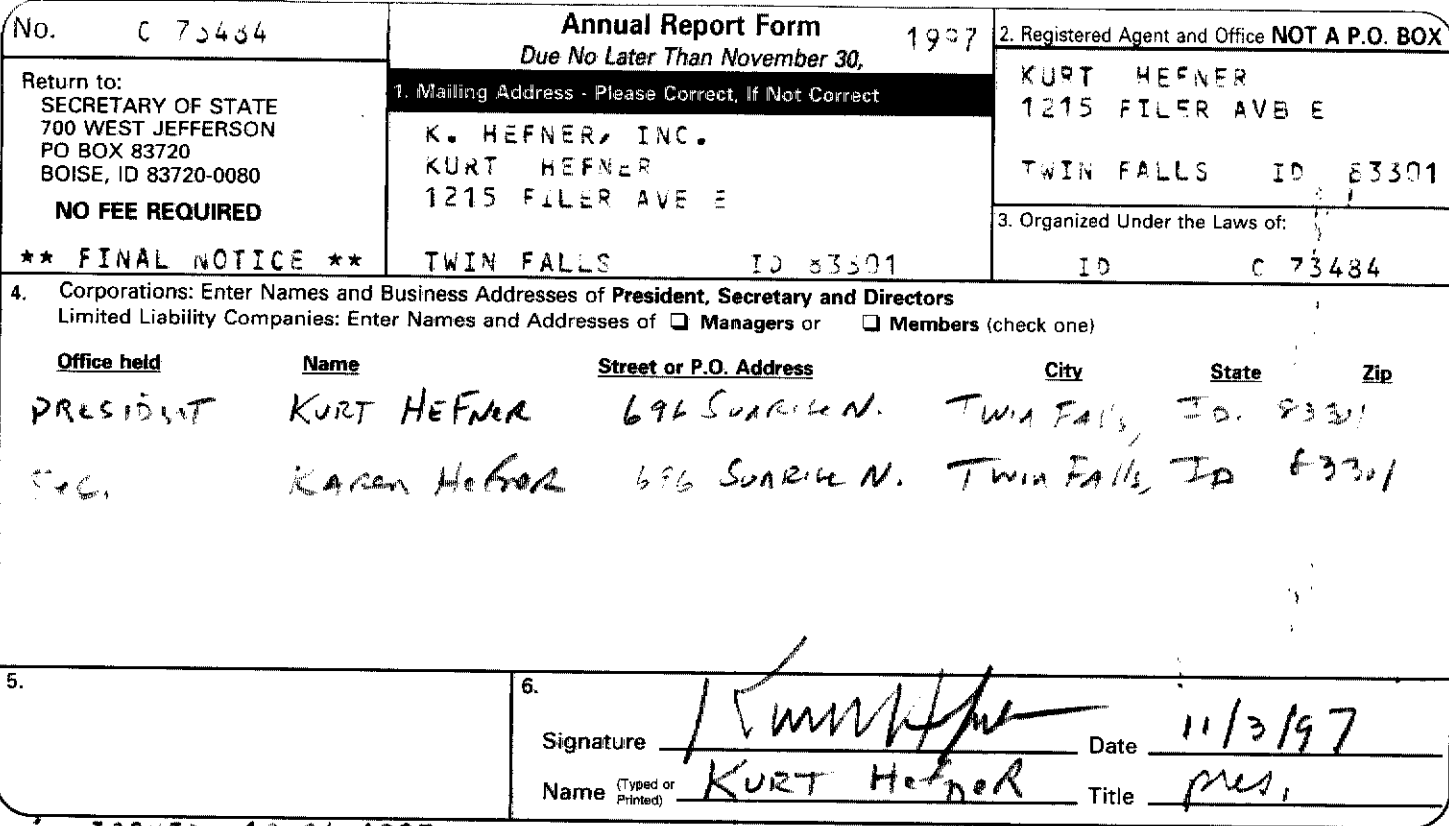 No. C 73484
Annual Report Form 1997
Due No Later Than November 30,
Return to:
SECRETARY OF STATE
700 WEST JEFFERSON
PO BOX 83720
BOISE, ID 83720-0080
NO FEE REQUIRED
** FINAL NOTICE **
1. Mailing Address - Please Correct, If Not Correct
K. HEFNER, INC.
KURT HEFNER
1215 FILER AVE E
TWIN FALLS ID 83301
2. Registered Agent and Office NOT A P.O. BOX
KURT HEFNER
1215 FILER AVB E
TWIN FALLS ID 83301
3. Organized Under the Laws of:
ID C 73484
4. Corporations: Enter Names and Business Addresses of President, Secretary and Directors
Limited Liability Companies: Enter Names and Addresses of ❑ Managers or ❑ Members (check one)
Office held Name Street or P.O. Address City State Zip
PRESIDENT KURT HEFNER 696 SUNRISE N. Twin Falls, ID. 83301
Sec. KAREN HEFNER 696 SUNRISE N. Twin Falls, ID 83301
5.
6.
Signature Kurt Hefner Date 11/3/97
Name (Typed or Printed) KURT HefneR Title pres.